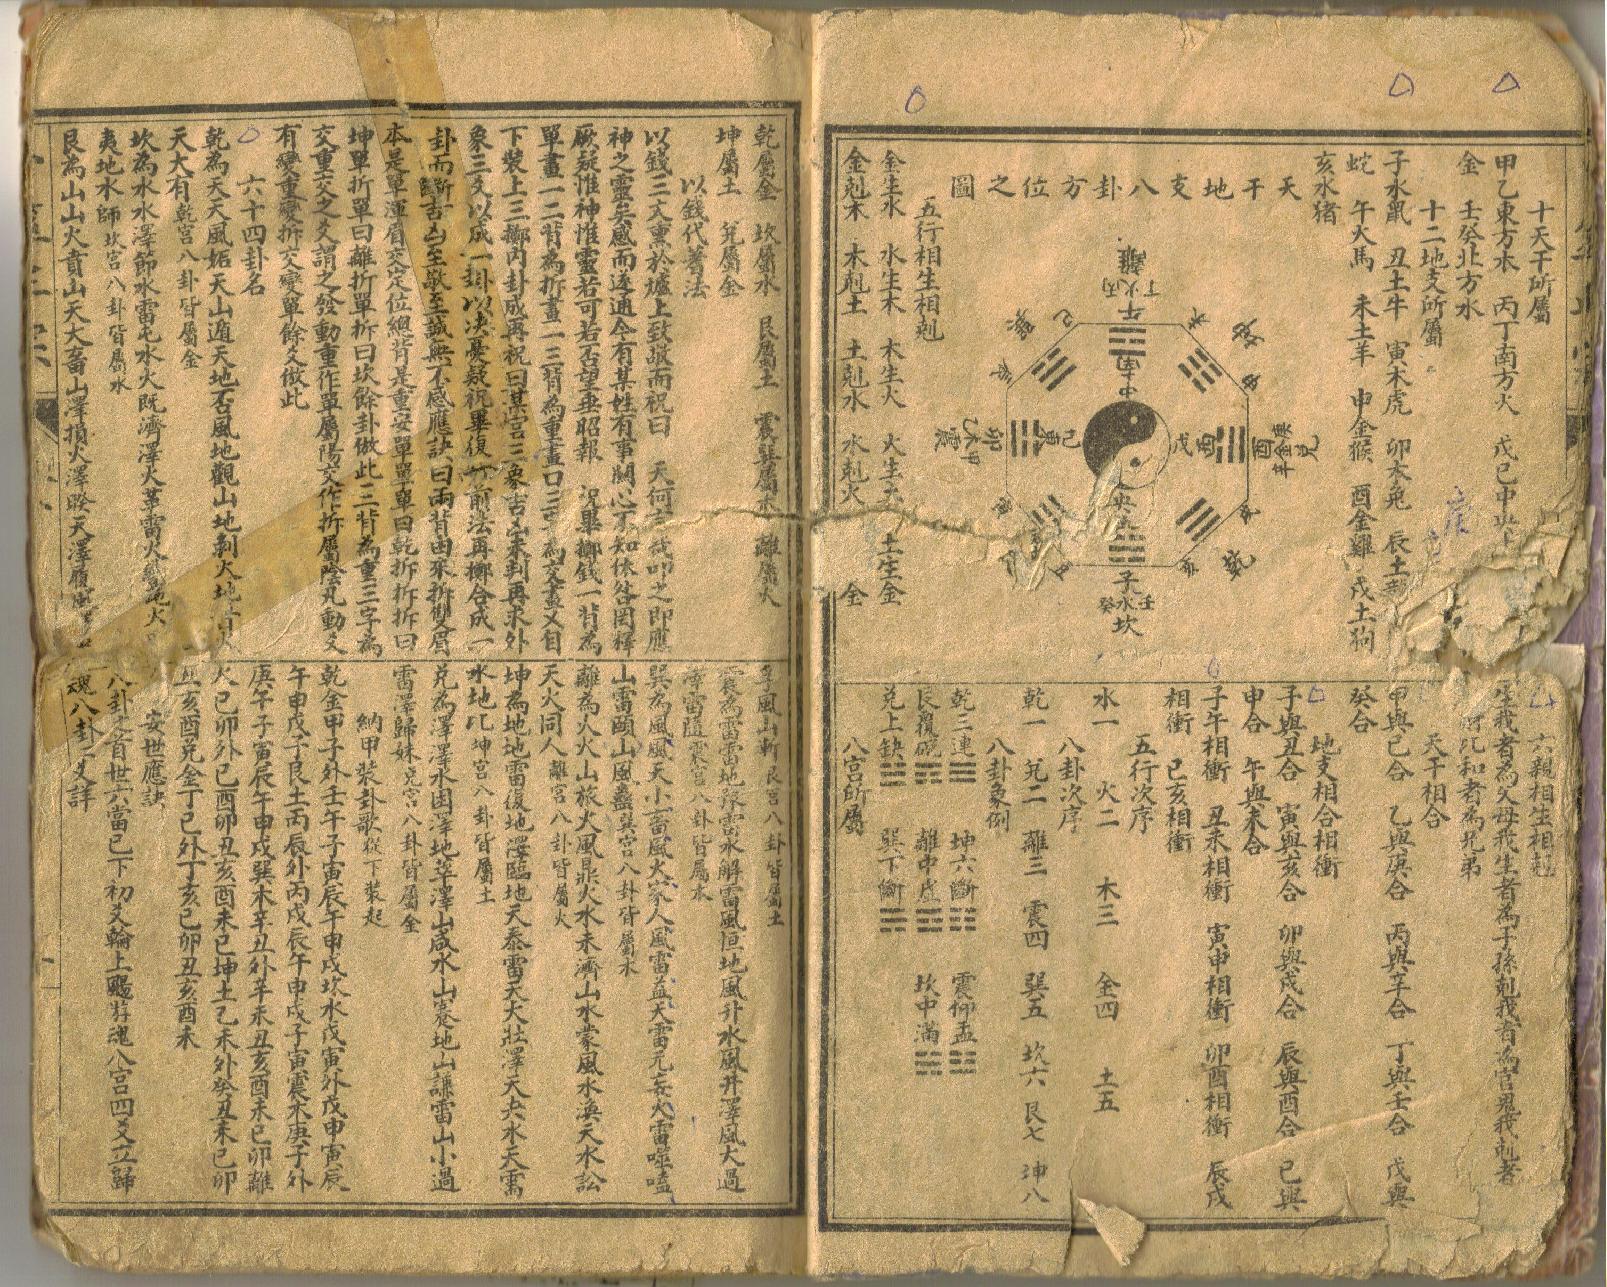 十天干所屬
甲乙東方木　丙丁南方火　戊己中
金　壬癸北方水
十二地支所屬
子水鼠　丑土牛　寅木虎　卯木兔　辰土
蛇　午火馬　未土羊　申金猴　酉金雞　戌土狗
亥水猪
天干地支八卦方位之圖
離
丙火丁
午
南
中
兌
庚金辛
酉
西
戊
己
東
卯
甲木乙
震
央
子
壬水癸
坎
乾
五行相生相剋
金生水　水生木　木生火　火生土　土生金
金剋木　木剋土　土剋水　水剋火　金
六親相生相剋
生我者為父母我生者為子孫剋我者為官鬼我剋者
比和者為兄弟
天干相合
甲與己合　乙與庚合　丙與辛合　丁與壬合　戊與
癸合
地支相合相衝
子與丑合　寅與亥合　卯與戌合　辰與酉合　巳與
申合　午與未合
子午相衝　丑未相衝　寅申相衝　卯酉相衝　辰戌
相衝　巳亥相衝
五行次序
水一　火二　木三　金四　土五
八卦次序
乾一　兌二　離三　震四　巽五　坎六　艮七　坤八
八卦象例
乾三連☰　坤六斷☷　震仰盂☳
艮覆碗☶　離中虛☲　坎中滿☵
兌上缺☱　巽下斷☴
八宮所屬
乾屬金　坎屬水　艮屬土　震巽屬木　離屬火
坤屬土　兌屬金
以錢代蓍法
以錢三文熏於爐上致敬而祝曰　天何言哉叩之即應
神之靈矣感而遂通今有某姓有事關心不知休咎罔釋
厥疑惟神惟靈若可若否望垂昭報　祝畢擲錢一背為
單畫一二背為折畫二三背為重畫口三字為交畫乂自
下裝上三擲內卦成再祝曰某宮三象吉凶未判再求外
象三爻以成一卦以决憂疑祝畢復如前法再擲合成一
卦而斷吉凶至敬至誠無不感應訣曰兩背由來拆雙眉
本是單渾眉交定位總背是重安單單單曰乾拆拆拆曰
坤單折單曰離折單折曰坎餘卦倣此三背為重三字為
交重交之爻謂之發動重作單屬陽交作拆屬陰凡動爻
有變重變拆交變單餘爻倣此
六十四卦名
乾為天天風姤天山遁天地否風地觀山地剝火地晉火
天大有乾宮八卦皆屬金
坎為水水澤節水雷屯水火既濟澤火革雷火豐地火
夷地水師坎宮八卦皆屬水
艮為山山火賁山天大畜山澤損火澤睽天澤履風
孚風山漸艮宮八卦皆屬土
震為雷雷地豫雷水解雷風恒地風升水風井澤風大過
澤雷隨震宮八卦皆屬木
巽為風風天小畜風火家人風雷益天雷无妄火雷噬嗑
山雷頤山風蠱巽宮八卦皆屬木
離為火火山旅火風鼎火水未濟山水蒙風水渙天水訟
天火同人離宮八卦皆屬火
坤為地地雷復地澤臨地天泰雷天大壯澤天夬水天需
水地比坤宮八卦皆屬土
兌為澤澤水困澤地萃澤山咸水山蹇地山謙雷山小過
雷澤歸妹兌宮八卦皆屬金
納甲裝卦歌從下裝起
乾金甲子外壬午子寅辰午申戌坎水戊寅外戊申寅辰
午申戌子艮土丙辰外丙戌辰午申戌子寅震木庚子外
庚午子寅辰午申戌巽木辛丑外辛未丑亥酉未巳卯離
火己卯外己酉卯丑亥酉未巳坤土乙未外癸丑未巳卯
丑亥酉兌金丁巳外丁亥巳卯丑亥酉未
安世應訣
八卦之首世六當已下初爻輪上颺游魂八宮四爻立歸
魂八卦三爻詳